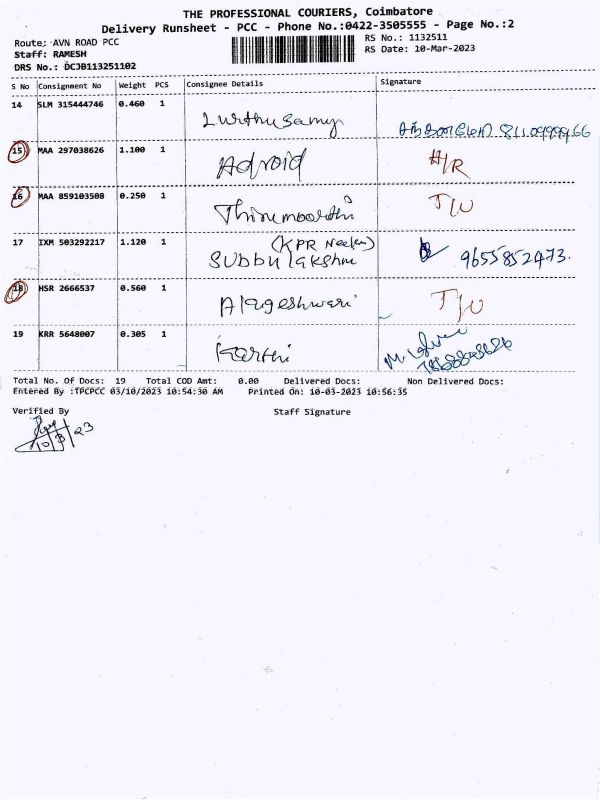 THE PROFESSIONAL COURIERS, Coimbatore
Delivery Runsheet - PCC - Phone No.:0422-3505555 - Page No.:2
Route: AVN ROAD PCC RS No.: 1132511
Staff: RAMESH RS Date: 10-Mar-2023
DRS No.: DCJB113251102
S No Consignment No Weight PCS Consignee Details Signature
14 SLM 315444746 0.460 1 Lurthusamy 8110999966
15 MAA 297038626 1.100 1 Adroid H/R
16 MAA 859103508 0.250 1 Thirumoorthi T/U
(KPR Neelam)
17 IXM 503292217 1.120 1 Subbulakshmi 9655852473.
18 HSR 2666537 0.560 1 Alageshwari T/U
19 KRR 5648007 0.305 1 Karthi
Total No. Of Docs: 19 Total COD Amt: 0.00 Delivered Docs: Non Delivered Docs:
Entered By :TPCPCC 03/10/2023 10:54:30 AM Printed On: 10-03-2023 10:56:35
Verified By Staff Signature
10/3/23